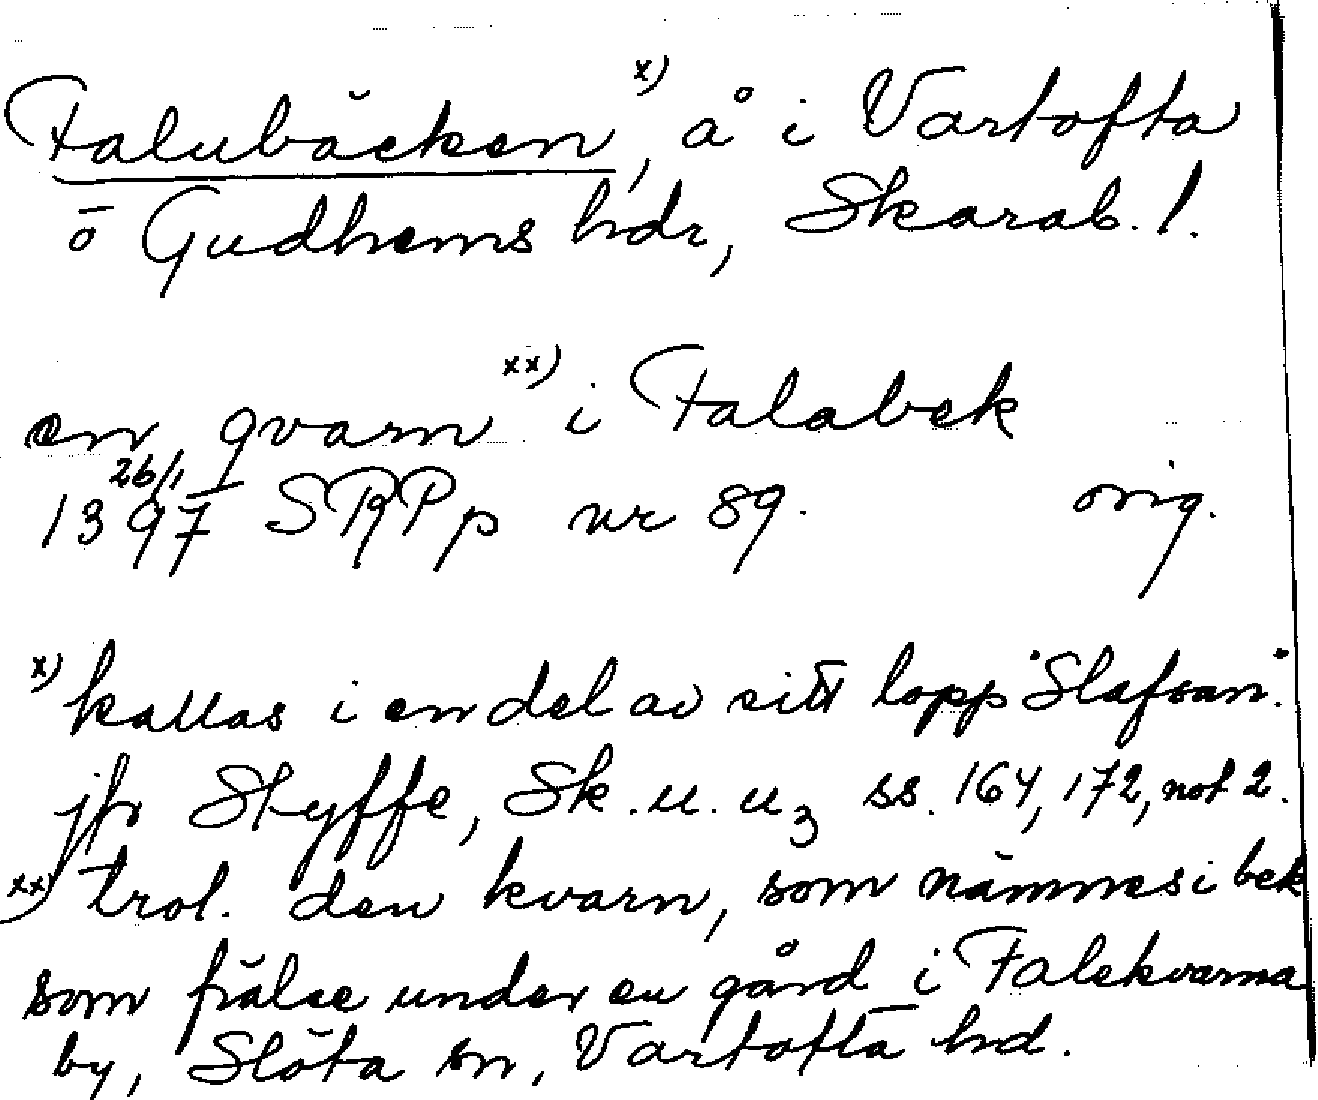 Falubäcken, x) å i Vartofta
o Gudhems hdr, Skarab. l.
en qvarn xx) i Falabek
1397 26/1 SRPp nr 89. orig.
x) kallas i en del av sitt lopp "Slafsan".
jfr Styffe, Sk. u. u3 ss. 164, 172, not 2.
xx) trol. den kvarn, som nämnes i bek
som frälse under en gård i Falekvarna
by, Slöta sn, Vartofta hd.